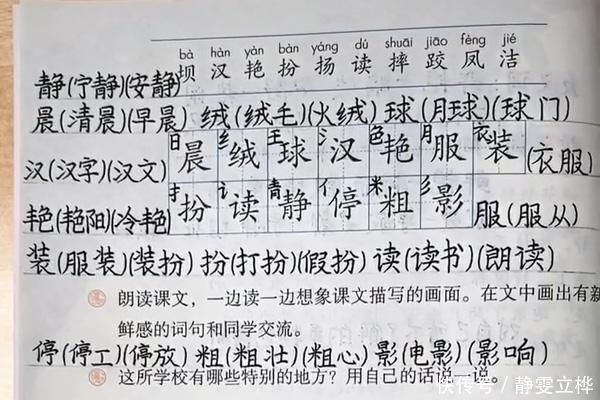 bà hàn yàn bàn yáng dú shuāi jiāo fèng jié
坝 汉 艳 扮 扬 读 摔 跤 凤 洁
静(宁静)(安静)
晨(清晨)(早晨) 绒(绒毛)(火绒) 球(月球)(球门)
日 纟 王 氵 色 月 衣
汉(汉字)(汉文) 晨 绒 球 汉 艳 服 装 (衣服)
扌 讠 青 亻 米 彡
艳(艳阳)(冷艳) 扮 读 静 停 粗 影 服(服从)
装(服装)(装扮) 扮(打扮)(假扮) 读(读书)(朗读)
朗读课文，一边读一边想象课文描写的画面。在文中画出有新
鲜感的词句和同学交流。
停(停工)(停放) 粗(粗壮)(粗心) 影(电影)(影响)
这所学校有哪些特别的地方？用自己的话说一说。
快传号 / 静雯立桦